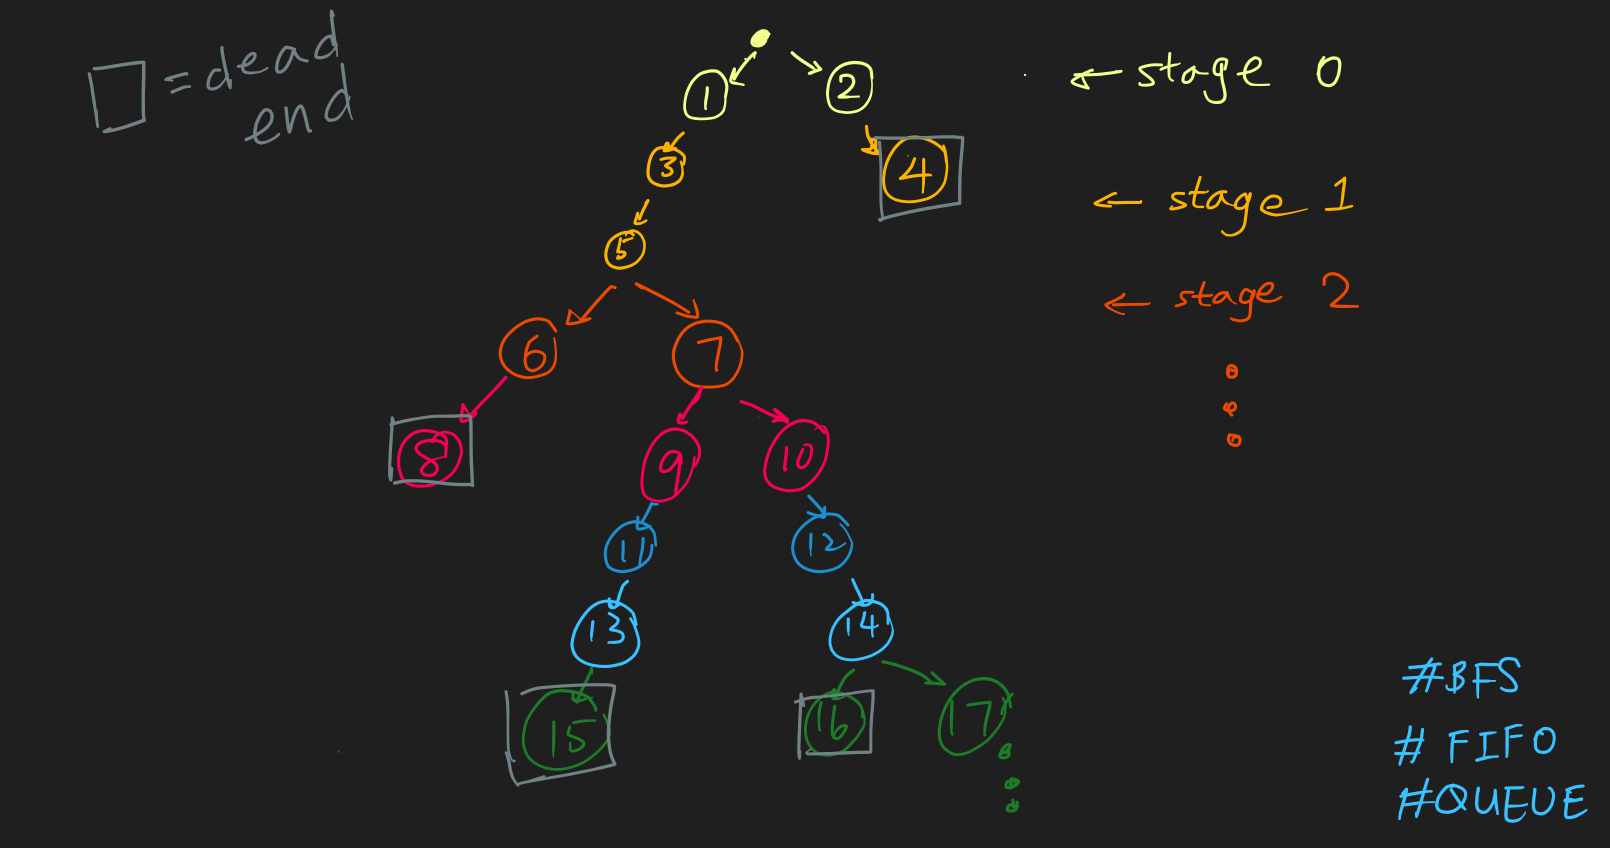 = dead
end
← stage 0
1
2
3
4
← stage 1
5
← stage 2
6
7
8
9
10
11
12
13
14
15
16
17
#BFS
# FIFO
#QUEUE